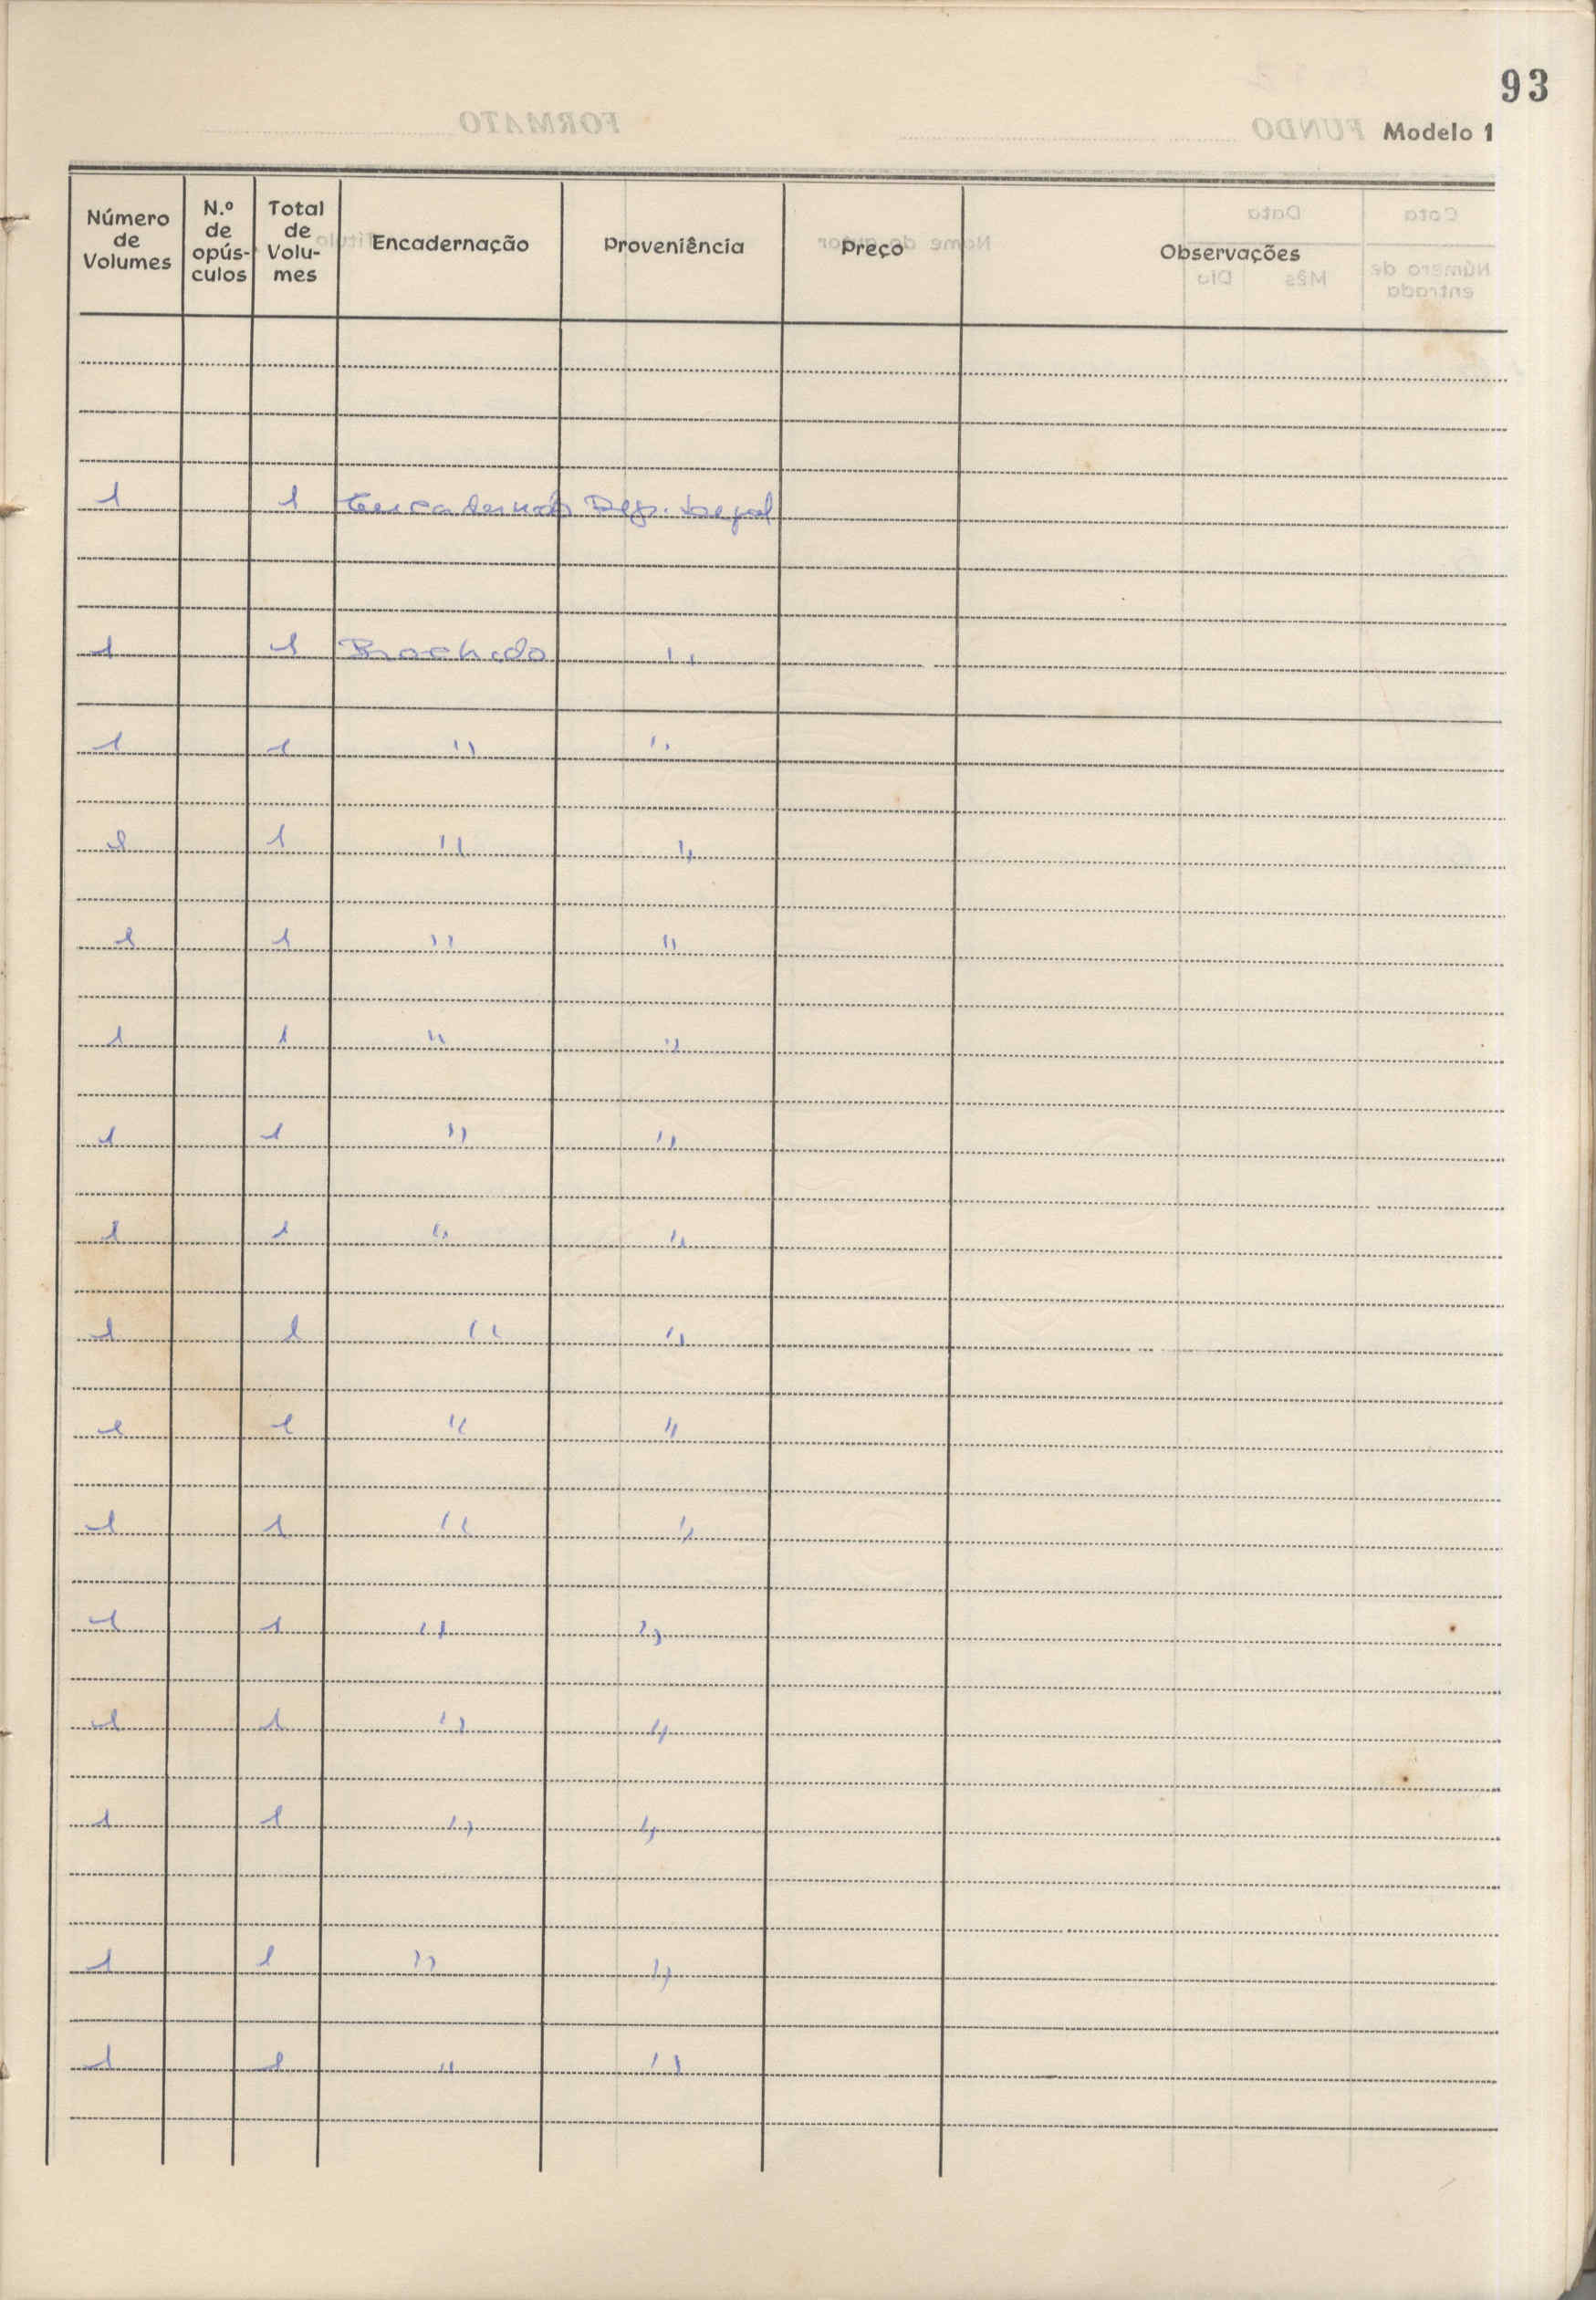 93
Modelo 1
Número de Volumes | N.º de opús-culos | Total de Volu-mes | Encadernação | Proveniência | Preço | Observações
1 | | 1 | Encadernado | Dep. Legal
1 | | 1 | Brochado | ''
1 | | 1 | '' | ''
1 | | 1 | '' | ''
1 | | 1 | '' | ''
1 | | 1 | '' | ''
1 | | 1 | '' | ''
1 | | 1 | '' | ''
1 | | 1 | '' | ''
1 | | 1 | '' | ''
1 | | 1 | '' | ''
1 | | 1 | '' | ''
1 | | 1 | '' | ''
1 | | 1 | '' | ''
1 | | 1 | '' | ''
1 | | 1 | '' | ''